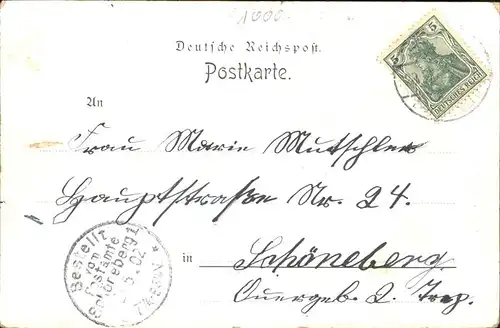 1000
Deutsche Reichspost.
Postkarte.
5 5
DEUTSCHES REICH
An
Frau Marie Mutschler
Hauptstraße Nr. 24.
in Schöneberg.
Quergeb. 2. Trep.
Bestellt
vom
Postamte
Schöneberg 1
5. 02